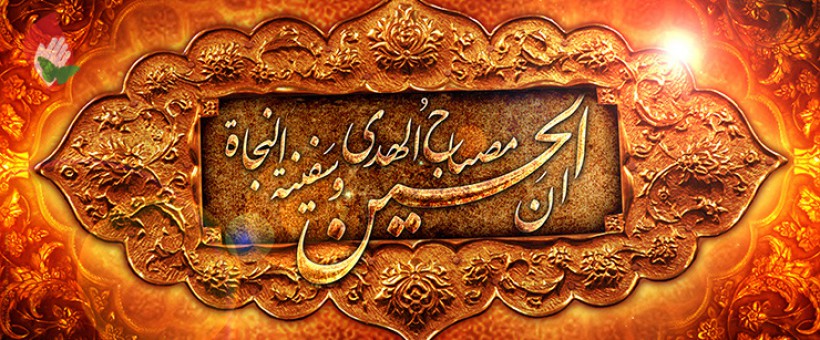 ان الحسین مصباح الهدی وسفینة النجاة